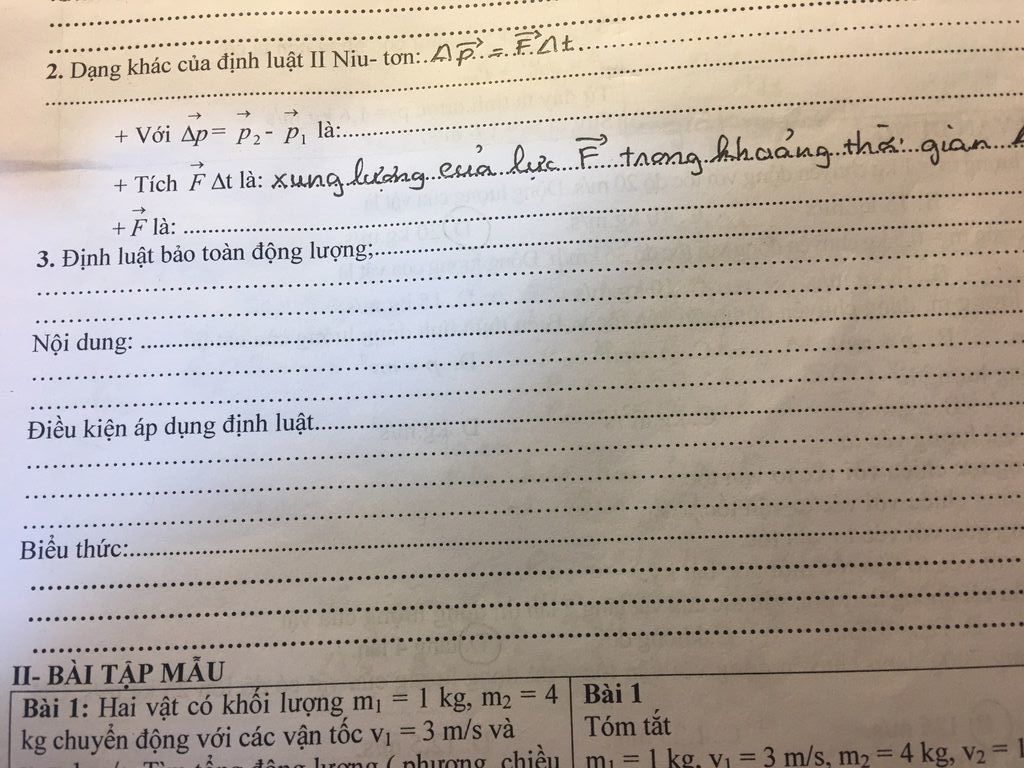 2. Dạng khác của định luật II Niu- tơn: Δp⃗ = F⃗Δt
+ Với Δp⃗ = p⃗₂ - p⃗₁ là:
+ Tích F⃗ Δt là: xung lượng của lực F⃗ trong khoảng thời gian
+ F⃗ là:
3. Định luật bảo toàn động lượng;
Nội dung:
Điều kiện áp dụng định luật
Biểu thức:
II- BÀI TẬP MẪU
Bài 1: Hai vật có khối lượng m₁ = 1 kg, m₂ = 4
kg chuyển động với các vận tốc v₁ = 3 m/s và
tổng động lượng ( phương, chiều
Bài 1
Tóm tắt
m₁ = 1 kg, v₁ = 3 m/s, m₂ = 4 kg, v₂ = 1